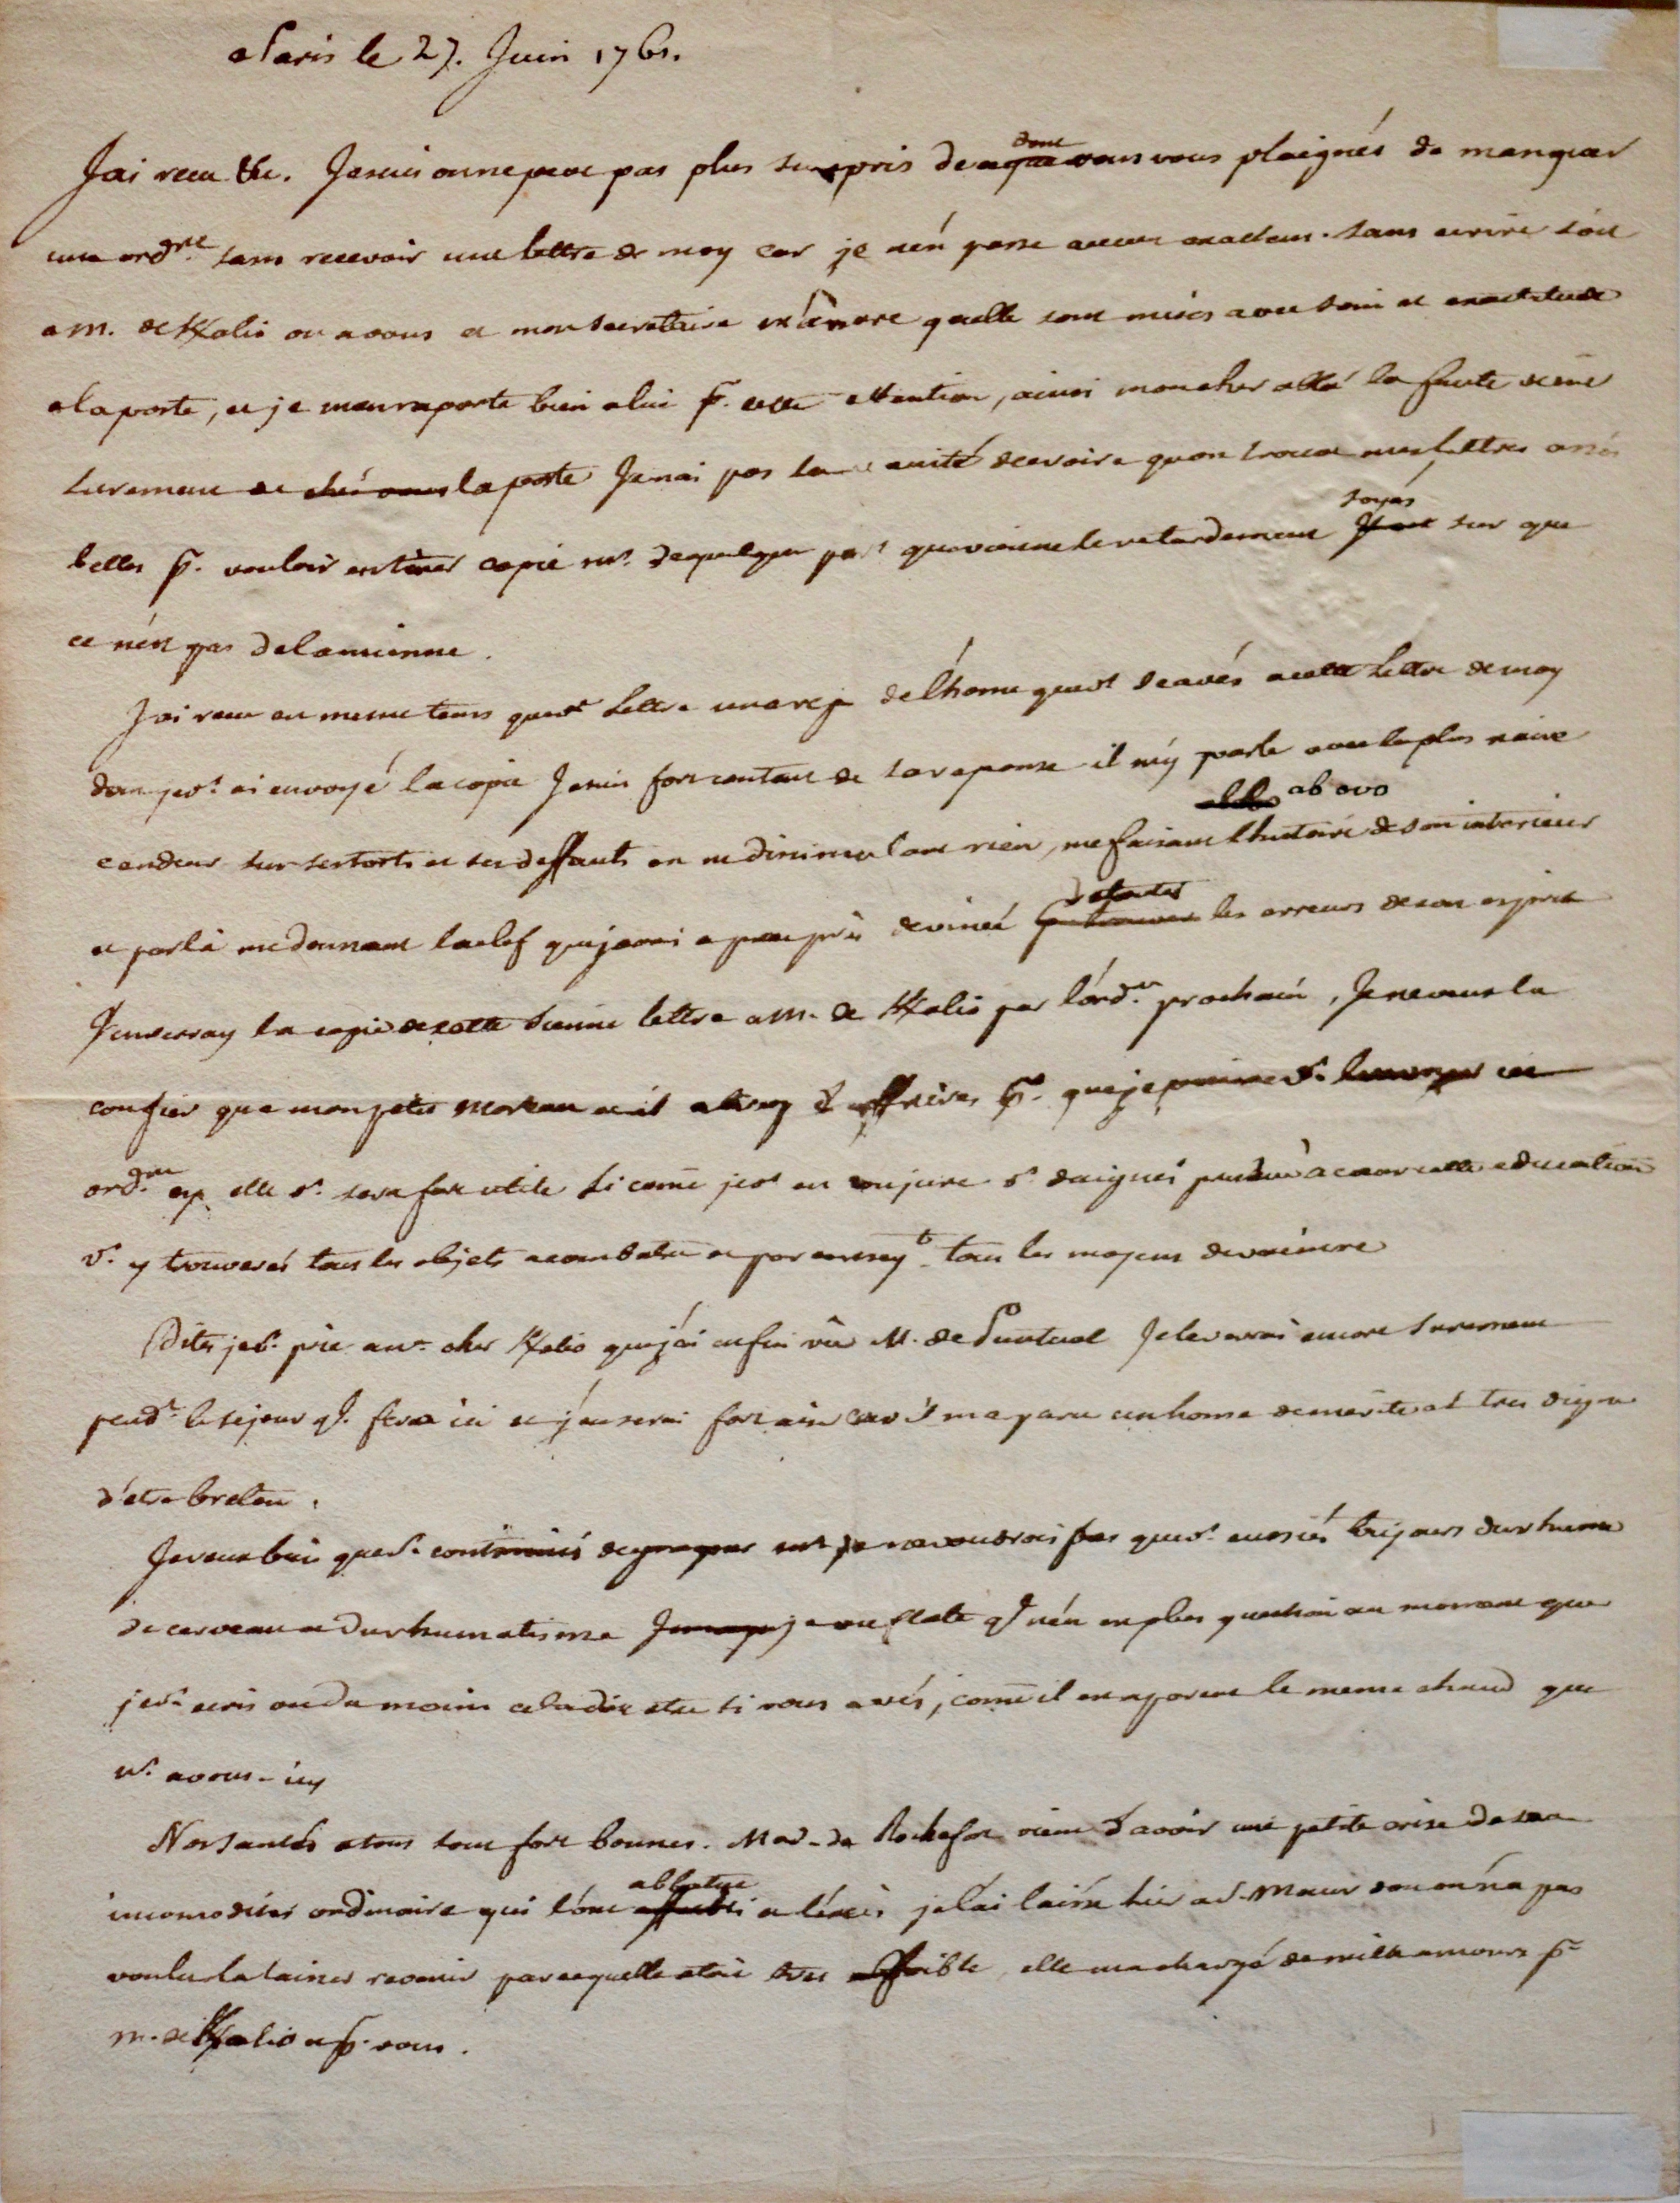 a Paris le 27. Juin 1761.
Jai receu &c. Je suis on ne peut pas plus surpris de ce dont vous vous plaignés de manquer
un ord.re sans recevoir une lettre de moy car je n'en passe aucun sans ecrire soit
a M. de Kalio ou a vous et mon secretaire m'assure quelle sont mises avec soin et exactitude
a la poste, et je men raporte bien a lui p. cette attention, ainsi mon cher abbé la faute vient
surement de chés vous la poste Je nai pas la vanité de croire quon trouve mes lettres assés
belles p. vouloir en tirer copie m.s de quelque part que vienne le retardement soyés sur que
ce n'est pas de la mienne.
Jai receu en meme tems que v.e lettre une rep de l'homme que v.s scavés a cette lettre de moy
dont je v.s ai envoyé la copie Je suis fort content de sa reponse il m'y parle avec la plus naive
candeur sur ses torts et ses deffauts en ne dissimulant rien, me faisant ab ovo l'histoire de son interieur
et par là me donnant la clef que j'avois a peu près deviné de toutes les erreurs de son esprit
J'enverray la copie de cette sienne lettre a M. de Kalio par l'ord.re prochain, Je ne veux la
confier que a mon petit Moreau et il a trop d'affaires p. que je puisse v.s l'envoyer cet
ord.re cy elle v.s sera fort utile si come je v.s en conjure v.s daignés prendre a coeur cette education
v.s y trouverés tous les objets a combatre et par consey.t tous les moyens de vaincre
Dites je v.s prie au v.e cher Kalio que j'ai enfin vû M. de Pontual Je le verai encore surement
pend.t le sejour q'il fera ici et j'en serai fort aise car il m'a paru un home de merite et tres digne
d'etre breton.
Je veux bien que v.s continuiés de m.s je ne voudrois pas que v.s eussiés toujours du rhume
de cerveau et du rhumatisme je me flate q'il n'en est plus question au moment que
je v.s ecris ou du moins cela doit etre si vous avés, come il en aparence le meme chaud que
n.s avons icy
Nos santés a tous sont fort bonnes. Mad. de Rochefort vient d'avoir une petite crise de ses
incomodités ordinaire qui l'ont abbatue a l'excès je l'ai laissée hier a S. Maur dont on n'a pas
voulu la laisser revenir parce quelle etoit tres foible elle m'a chargé de mille amours p.
M. de Kalio et p. vous.